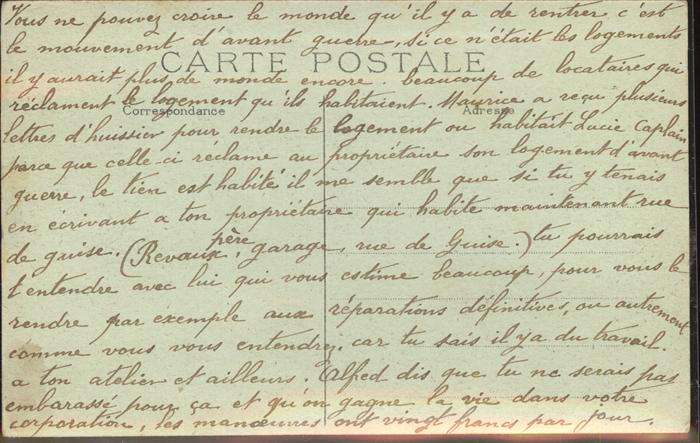 Vous ne pouvez croire le monde qu'il y a de rentrer c'est
le mouvement d'avant guerre, si ce n'était les logements
CARTE POSTALE
il y aurait plus de monde encore. beaucoup de locataires qui
réclament le logement qu'ils habitaient. Maurice a reçu plusieurs
Correspondance
Adresse
lettres d'huissier pour rendre le logement ou habitait Lucie Caplain
parce que celle-ci réclame au propriétaire son logement d'avant
guerre, le tien est habité il me semble que si tu y tenais
en écrivant a ton propriétaire qui habite maintenant rue
de guise. (Revaux père, garage, rue de Guise.) tu pourrais
t entendre avec lui qui vous estime beaucoup, pour vous le
rendre par exemple aux réparations définitives, ou autrement
comme vous vous entendrez, car tu sais il y a du travail.
a ton atelier et ailleurs. Alfred dis que tu ne serais pas
embarassé pour ça et qu'on gagne la vie dans votre
corporation, les manœuvres ont vingt francs par jour.